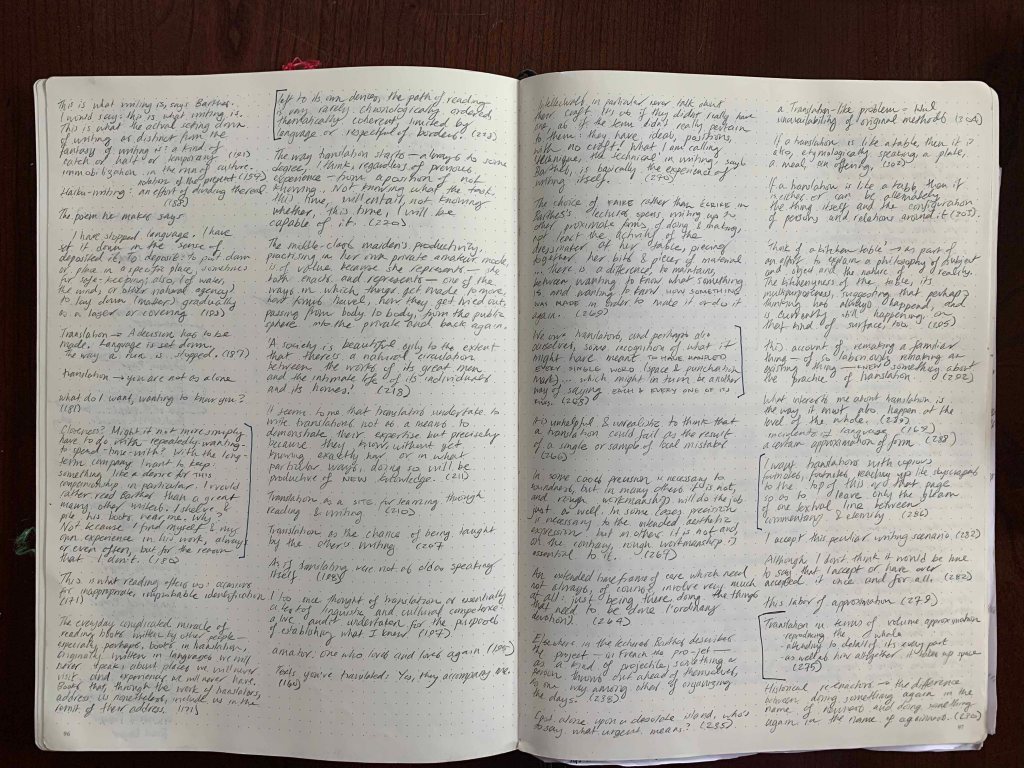 This is what writing is, says Barthes.
I would say: this is what writing is.
This is what the actual setting down
of writing as distinct from the
fantasy of writing is: a kind of
catch or halt or temporary (191)
immobilization in the run of culture.
notation of the present (189)
Haiku-writing: an effort of dividing the real
(188)
The poem he makes says
I have stopped language. I have
set it down in the sense of
deposited it. To deposit: to put down
or place in a specific place, sometimes
for safe-keeping; also, (of water,
the wind, or other natural agency)
to lay down (matter) gradually
as a layer or covering (193)
Translation → A decision has to be
made. Language is set down,
the way a run is stopped. (187)
translation → you are not as alone
what do I want, wanting to know you?
(181)
Closeness? Might it not more simply
have to do with repeatedly wanting
to spend-time-with? With the long-
term company I want to keep:
something like a desire for this
companionship in particular. I would
rather read Barthes than a great
many other writers. I shelve &
pile his books near me. Why?
Not because I find myself & my
own experience in his work, always
or even often, but for the reason
that I don't. (180)
This is what reading offers us: occasions
for inappropriate, improbable identification
(171)
The everyday complicated miracle of
reading books written by other people –
especially, perhaps, books in translation,
originally written in languages we will
never speak, about places we will never
visit and experiences we will never have.
Books that, through the work of translators,
address us nonetheless, include us in the
remit of their address. (171)
96
left to its own devices, the path of reading
is very rarely chronologically ordered,
thematically coherent, limited by
language or respectful of borders. (223)
The way translation starts – always to some
degree, I think, regardless of previous
experience – from a position of not
knowing. Not knowing what the task,
this time, will entail, not knowing
whether, this time, I will be
capable of it. (220)
The middle-class maiden's productivity,
practising in her own private amateur mode,
is of value because she represents – she
both enacts and represents – one of the
ways in which, these get made to move,
how things travel, how they get tried out,
passing from body to body, from the public
sphere into the private and back again.
'A society is beautiful only to the extent
that there's a natural circulation
between the works of its great men
and the intimate life of its individuals
and its homes.' (218)
it seems to me that translators undertake to
write translations not as a means to
demonstrate their expertise but precisely
because they know, without yet
knowing exactly how or in what
particular ways, doing so will be
productive of new knowledge. (211)
Translation as a site for learning through
reading & writing (210)
Translation as the chance of being taught
by the other's writing (207
As if translating were not as also speaking
itself (198)
I too once thought of translation as eventually
a test of linguistic and cultural competence:
a live audit undertaken for the purposes
of establishing what I knew (197)
amator: one who loves and loves again (195)
Texts you've translated: Yes, they accompany me.
(166)
Intellectuals, in particular never talk about
their craft. It's as if they didn't really have
one, as if the term didn't really pertain
to them: they have ideas, positions,
with no craft! What I am calling
technique, the technical in writing, says
Barthes, is basically the experience of
writing itself. (270)
The choice of FAIRE rather than ÉCRIRE in
Barthes's lectures opens writing up to
other proximate forms of doing & making,
not least the activity of the
dressmaker at her table, piecing
together her bits & pieces of material
... There is a difference, to maintain,
between wanting to know what something
is and wanting to know HOW SOMETHING
WAS MADE in order to make it or do it
again. (269)
We owe translators, and perhaps also
ourselves, some recognition of what it
might have meant TO HAVE HANDLED
EVERY SINGLE WORD (space & punctuation
mark) ... which might in turn be another
way of saying EACH & EVERY ONE OF ITS
(268)
it's unhelpful & unrealistic to think that
a translation could fail as the result
of a single or sample of local mistakes
(266)
In some cases precision is necessary to
soundness, but in many others it is not,
and rough workmanship will do the job
just as well. In some cases precision
is necessary to the intended aesthetic
expression but in other it is not and,
on the contrary, rough workmanship is
essential to it. (267)
An extended time frame of care which need
not always, of course, involve very much
at all: just being there, doing the things
that need to be done (ordinary
devotion). (264)
Elsewhere in the lectures Barthes describes
the project – in French the pro-jet –
as a kind of projectile, something a
person throws out ahead of themselves,
to one way among other of organizing
the days. (238)
(put alone upon a desolate island, who's
to say what urgent means? (235)
a Translation-like problem = the
unavailability of original methods (304)
If a translation is like a table, then it is
also, etymologically speaking, a plate,
a meal, an offering. (303)
If a translation is like a table, then it
neither or can be alternately
the thing itself and the configuration
of persons and relations around it. (303).
Think of a kitchen table → as part of
an effort to explain a philosophy of subject
and object and the nature of reality.
The kitchenyness of the table, its
multipurposeness, suggesting that perhaps
thinking has always happened, and
is currently still happening, on
that kind of surface, too. (295)
this account of remaking a familiar
thing – of so laboriously remaking an
existing thing – knew something about
the practice of translation. (292)
What interests me about translation is
the way it must also happen at the
level of the whole. (289)
a certain approximation of form (288)
I want translations with copious
footnotes, footnotes reaching up like skyscrapers
to the top of this or that page
so as to leave only the gleam
of one textual line between
commentary & eternity (286)
I accept this peculiar writing scenario (282)
Although I don't think it would be true
to say that I accept or have ever
accepted it once and for all. (282)
this labor of approximation (278)
Translation in terms of volume approximation
- reproducing the whole
- attending to detail of its every part
- as well as how altogether it takes up space
(275)
Historical re-enactors → the difference
between doing something again in the
name of newness and doing something
again in the name of againness. (230)
97